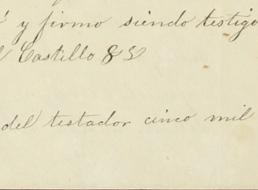 y firmo siendo testigo
Castillo &
del testador cinco mil